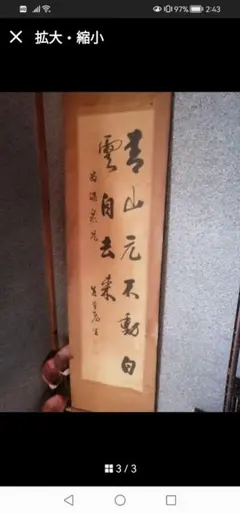 97% 2:43
拡大・縮小
青山元不動白
雲自去来
3 / 3